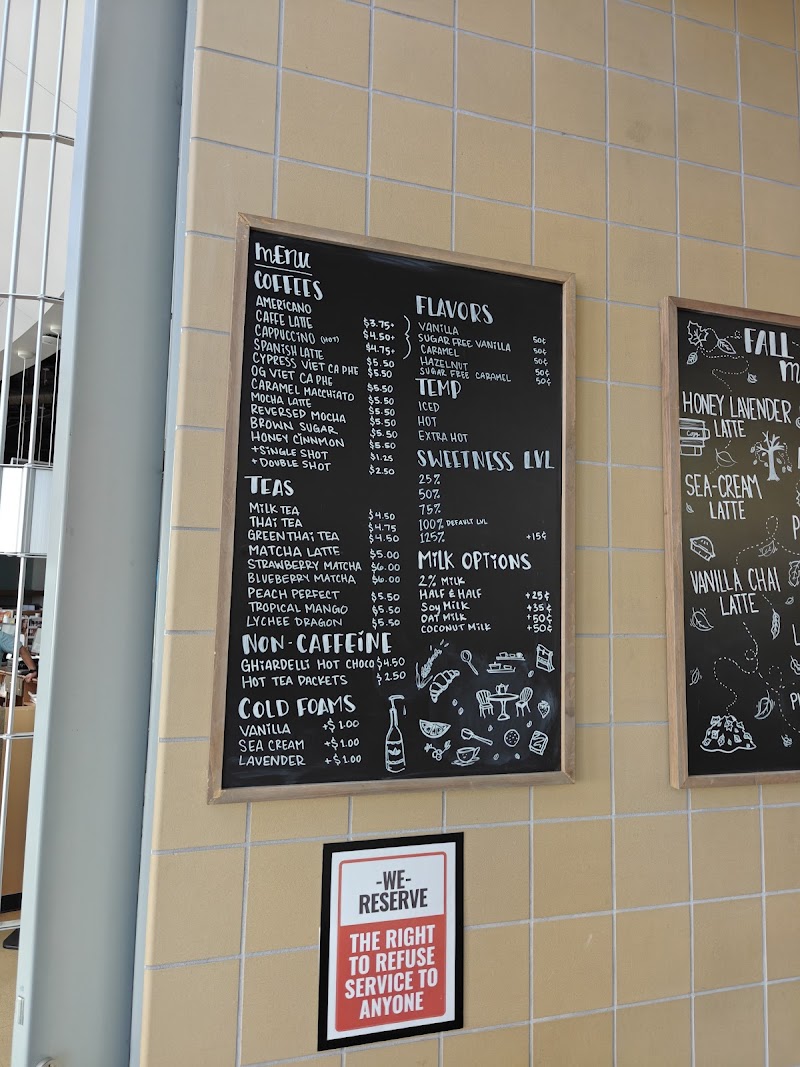 MENU
COFFEES
AMERICANO $3.75+
CAFFE LATTE $4.50+
CAPPUCCINO (HOT) $4.75+
SPANISH LATTE $5.50
CYPRESS VIET CA PHE $5.50
OG VIET CA PHE $5.50
CARAMEL MACCHIATO $5.50
MOCHA LATTE $5.50
REVERSED MOCHA $5.50
BROWN SUGAR $5.50
HONEY CINNMON $5.50
+SINGLE SHOT $1.25
+DOUBLE SHOT $2.50
TEAS
MILK TEA $4.50
THAI TEA $4.75
GREEN THAI TEA $4.50
MATCHA LATTE $5.00
STRAWBERRY MATCHA $6.00
BLUEBERRY MATCHA $6.00
PEACH PERFECT $5.50
TROPICAL MANGO $5.50
LYCHEE DRAGON $5.50
NON-CAFFEINE
GHIARDELLI HOT CHOCO $4.50
HOT TEA PACKETS $2.50
COLD FOAMS
VANILLA +$1.00
SEA CREAM +$1.00
LAVENDER +$1.00
FLAVORS
VANILLA 50¢
SUGAR FREE VANILLA 50¢
CARAMEL 50¢
HAZELNUT 50¢
SUGAR FREE CARAMEL 50¢
TEMP
ICED
HOT
EXTRA HOT
SWEETNESS LVL
25%
50%
75%
100% DEFAULT LVL
125% +15¢
MILK OPTIONS
2% MILK
HALF & HALF +25¢
SOY MILK +35¢
OAT MILK +50¢
COCONUT MILK +50¢
FALL
HONEY LAVENDER
LATTE
SEA-CREAM
LATTE
VANILLA CHAI
LATTE
-WE-
RESERVE
THE RIGHT
TO REFUSE
SERVICE TO
ANYONE